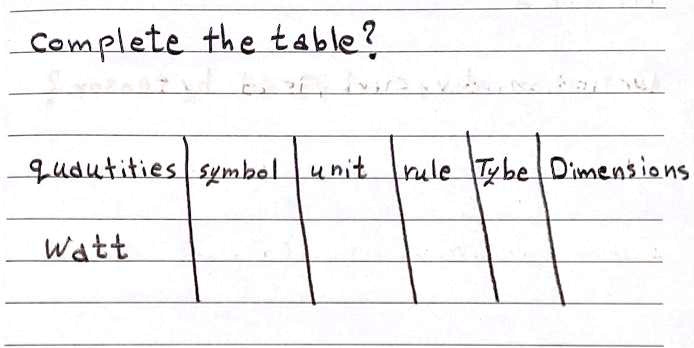 complete the table?
quautities symbol unit rule Tybe Dimensions
Watt